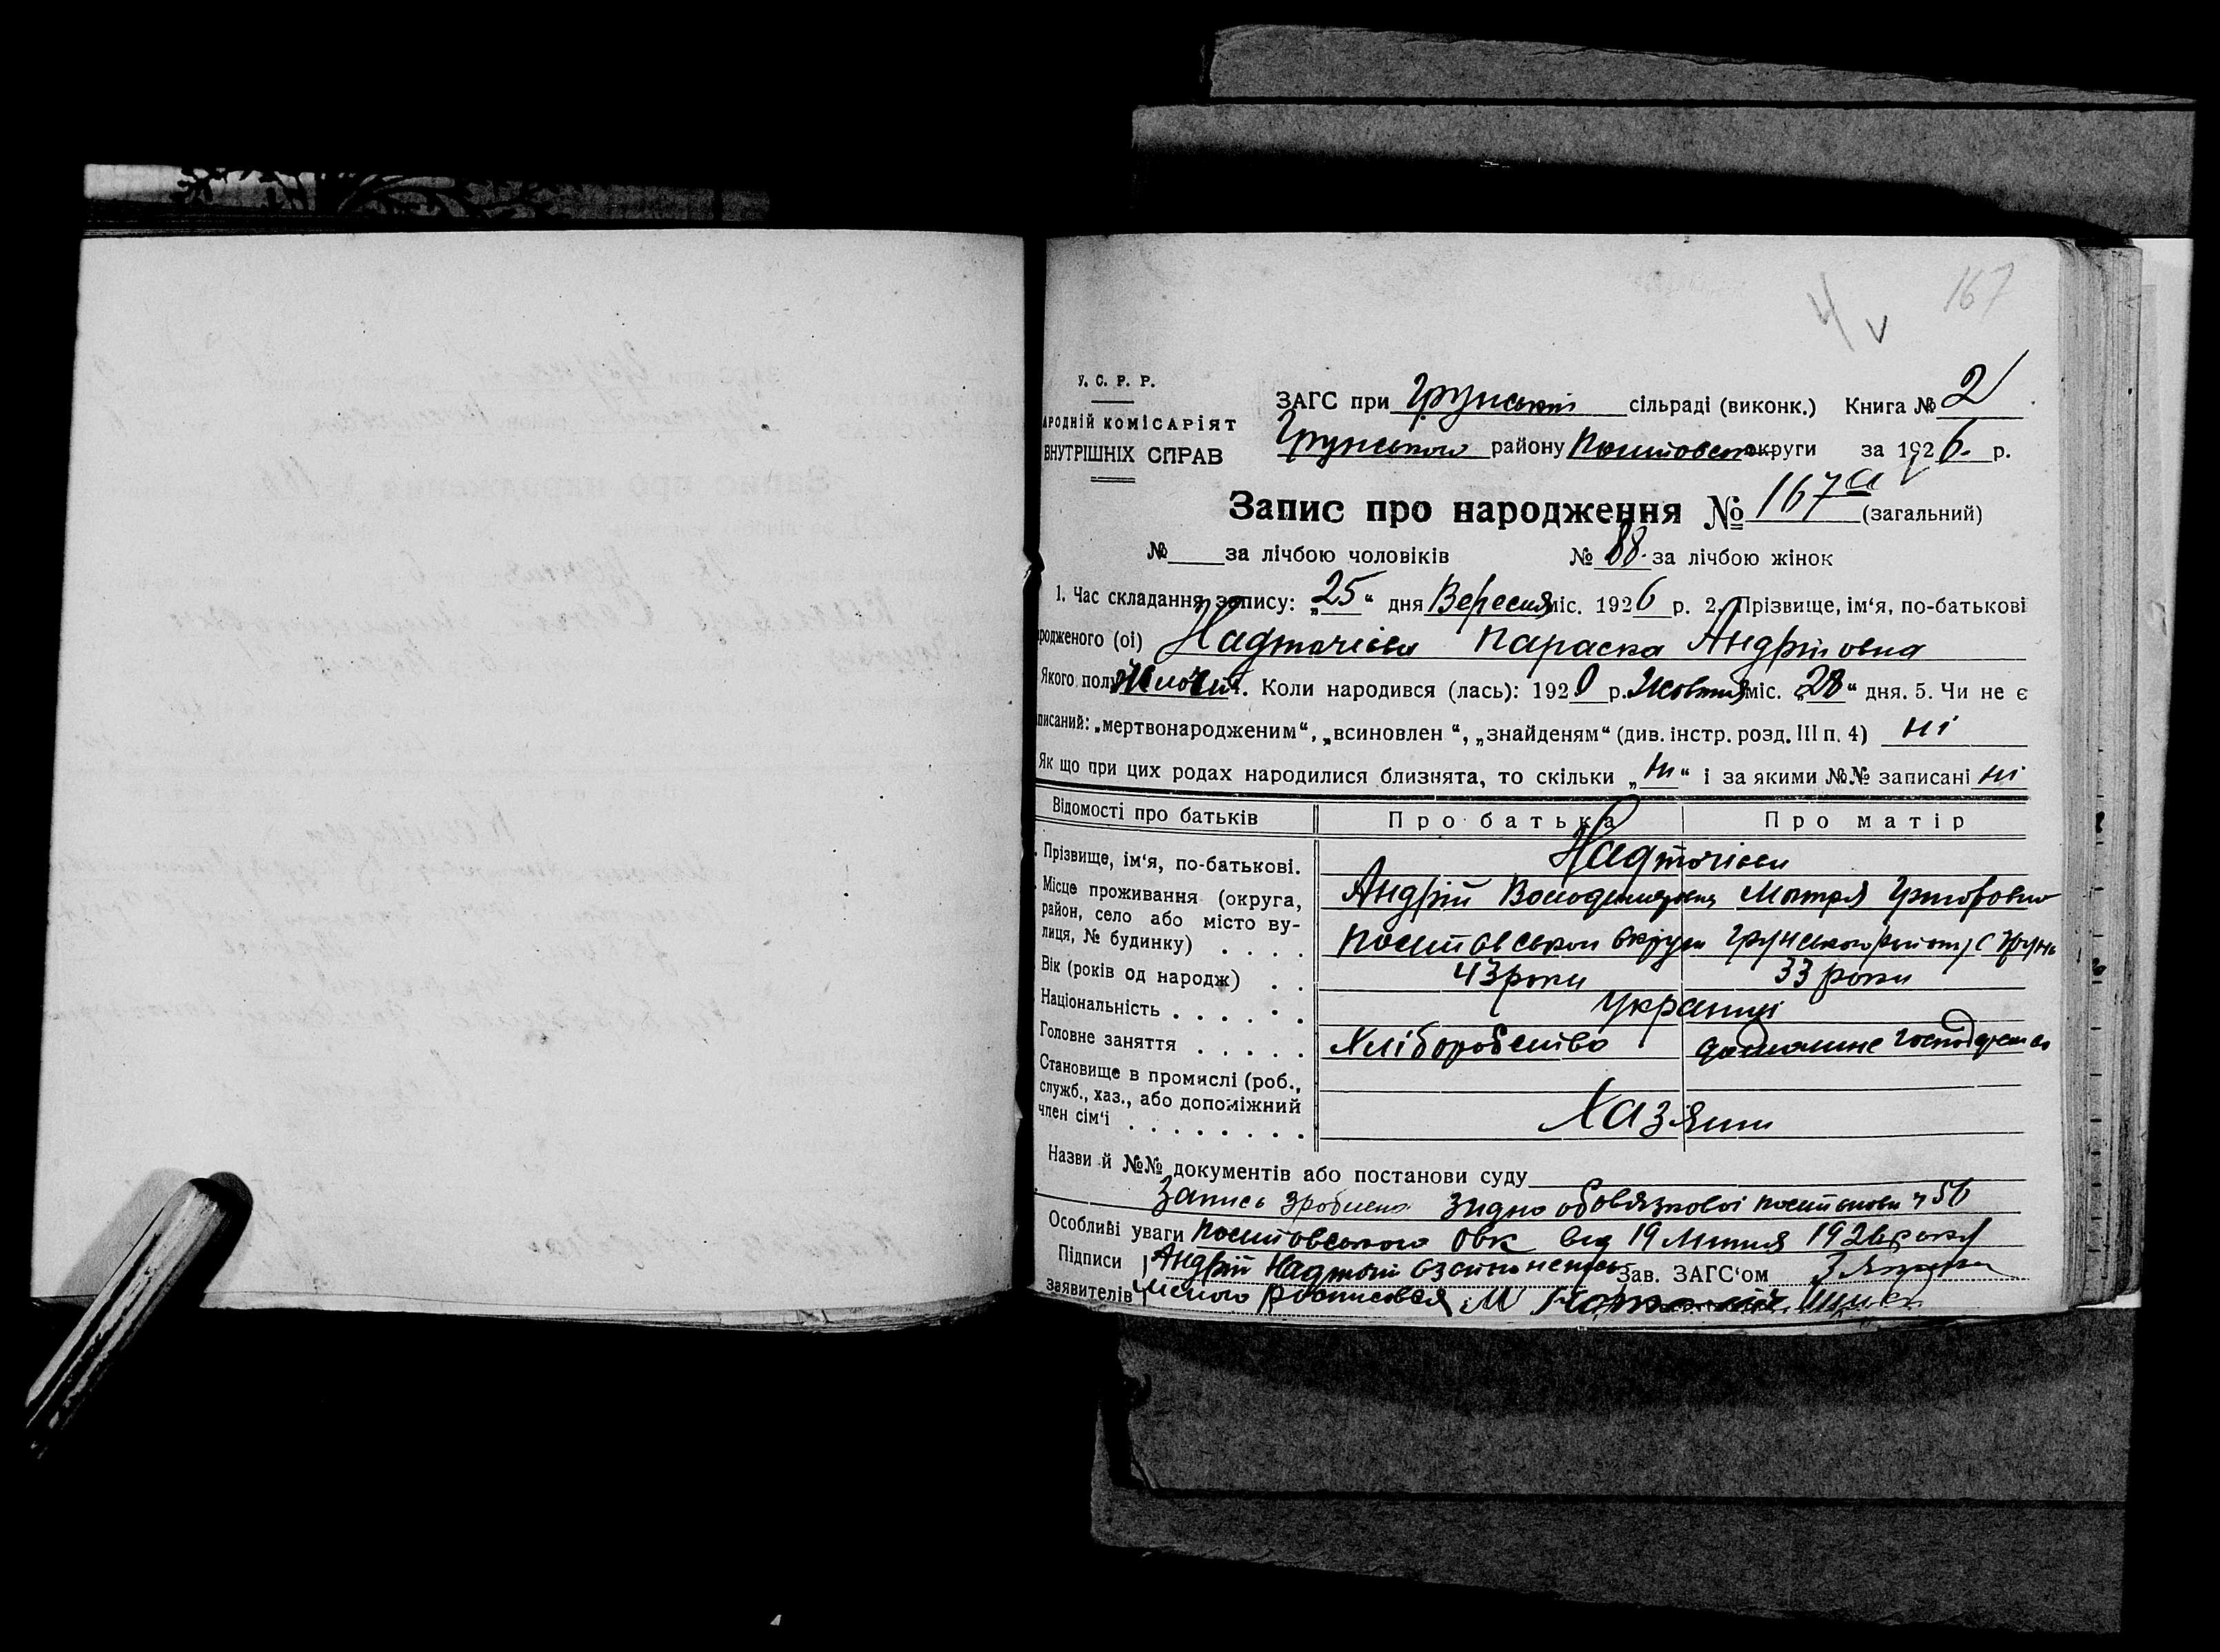 4 v 167
У. С. Р. Р.
АРОДНІЙ КОМІСАРІЯТ
ВНУТРІШНІХ СПРАВ
ЗАГС при Грунській сільраді (виконк.) Книга № 2
Грунського району округи за 1926. р.
Запис про народження № 167 а (загальний)
№ за лічбою чоловіків № 88. за лічбою жінок
1. Час складання запису: „25“ дня Вересня міс. 1926 р. 2. Прізвище, ім‘я, по-батькові
родженого (ої) Надточієва Параска Андріївна
Якого полу Жіночий. Коли народився (лась): 1920 р. Жовтня міс. „28“ дня. 5. Чи не є
писаний: „мертвонародженим“, „всиновлен “, „знайденям“ (див. інстр. розд. III п. 4) ні
Як що при цих родах народилися близнята, то скільки „ні“ і за якими №№ записані ні
Відомості про батьків Про батька Про матір
Прізвище, ім‘я, по-батькові. Надточієви
Андрій Мотря
Місце проживання (округа, район, село або місто вулиця, № будинку) . . . . округи Грунського району с Грунь
Вік (років од народж) . . 43 роки 33 роки
Національність . . . . . . Українці
Головне заняття . . . . . Хліборобство домашне господарство
Становище в промислі (роб.,
служб., хаз., або допоміжний
член сім‘ї . . . . . . . . Хазяини
Назви й №№ документів або постанови суду
Запись зроблено згідно обовязкової постанови 56
Особливі уваги ОВК від 19 Липня 1926 року
Підписи Андрій Надточий Зав. ЗАГС‘ом
заявителів М